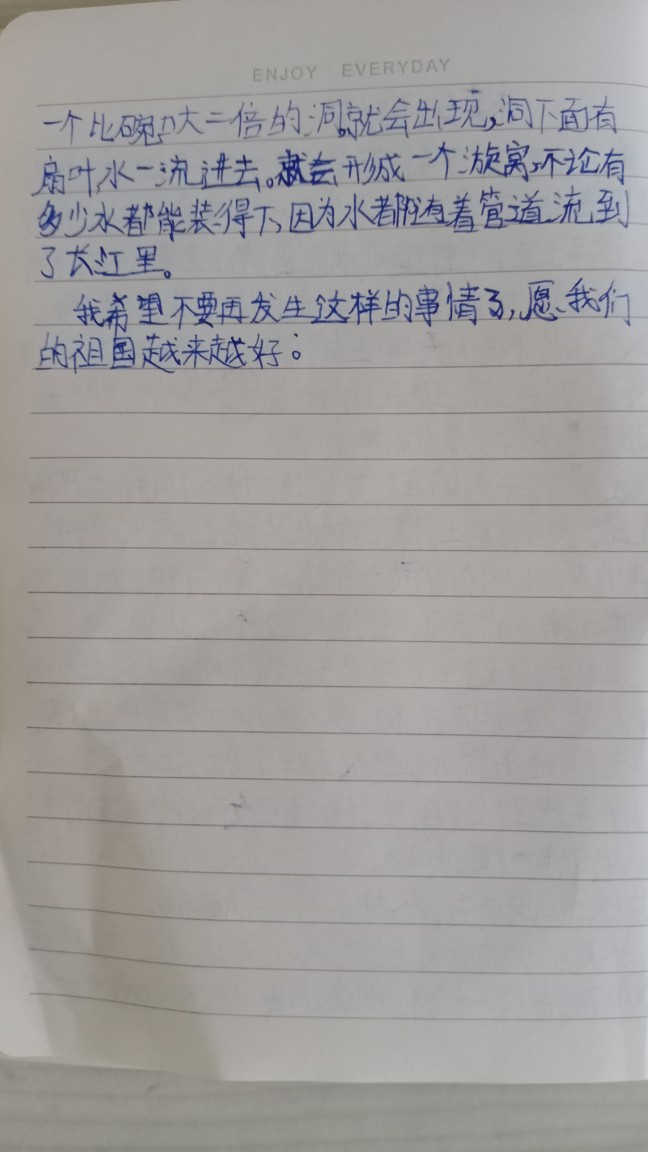 ENJOY EVERYDAY
一个比碗大二倍的洞,就会出现,洞下面有
扇叶,水一流进去。就会形成一个漩窝,不论有
多少水都能装得下,因为水都随着管道流到
了长江里。
我希望不要再发生这样的事情了,愿我们
的祖国越来越好。